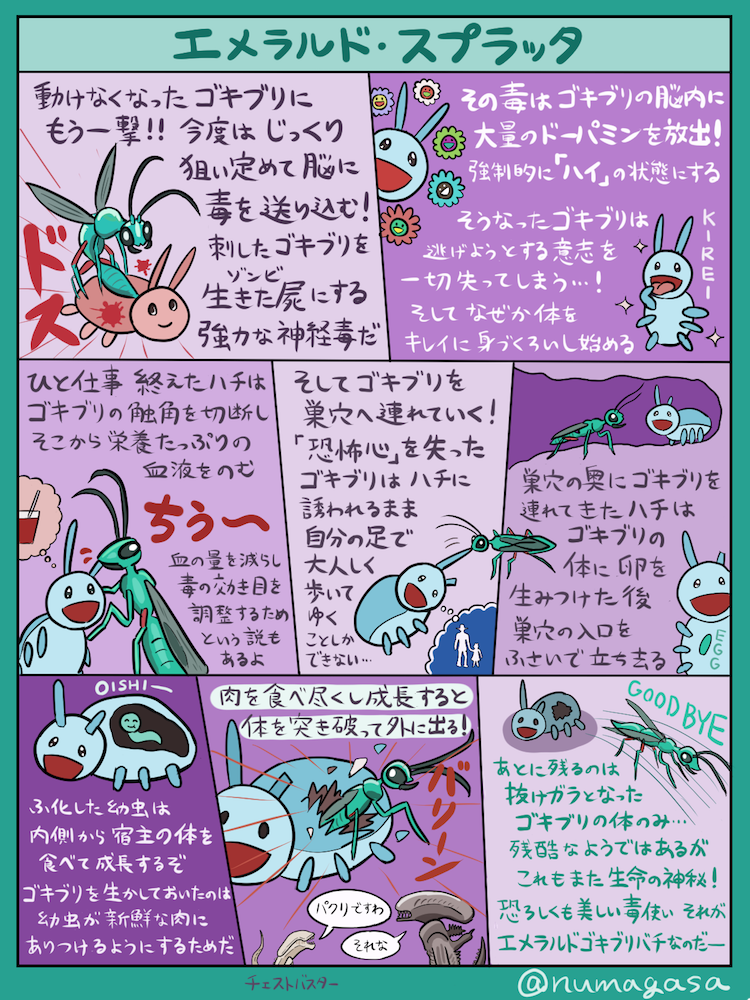 エメラルド・スプラッタ
動けなくなったゴキブリに
もう一撃!! 今度は じっくり
狙い定めて 脳に
毒を送り込む!
刺したゴキブリを
ゾンビ
生きた屍にする
強力な神経毒だ
ドス
その毒はゴキブリの脳内に
大量のドーパミンを放出!
強制的に「ハイ」の状態にする
そうなったゴキブリは
逃げようとする意志を
一切失ってしまう…!
そしてなぜか体を
キレイに身づくろいし始める
KIREI
ひと仕事 終えたハチは
ゴキブリの触角を切断し
そこから栄養たっぷりの
血液をのむ
ちぅ〜
血の量を減らし
毒の効き目を
調整するため
という説も
あるよ
そしてゴキブリを
巣穴へ連れていく!
「恐怖心」を失った
ゴキブリはハチに
誘われるまま
自分の足で
大人しく
歩いて
ゆく
ことしか
できない…
巣穴の奥にゴキブリを
連れてきたハチは
ゴキブリの
体に卵を
生みつけた後
巣穴の入口を
ふさいで立ち去る
EGG
OISHIー
ふ化した幼虫は
内側から宿主の体を
食べて成長するぞ
ゴキブリを生かしておいたのは
幼虫が新鮮な肉に
ありつけるようにするためだ
肉を食べ尽くし成長すると
体を突き破って外に出る!
バリーン
パクリですわ
それな
チェストバスター
GOODBYE
あとに残るのは
抜けガラとなった
ゴキブリの体のみ…
残酷なようではあるが
これもまた生命の神秘!
恐ろしくも美しい毒使い それが
エメラルドゴキブリバチなのだー
@numagasa